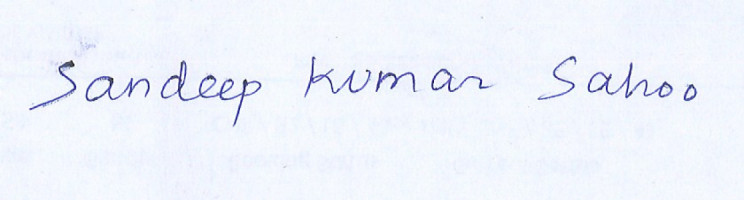 Sandeep Kumar Sahoo